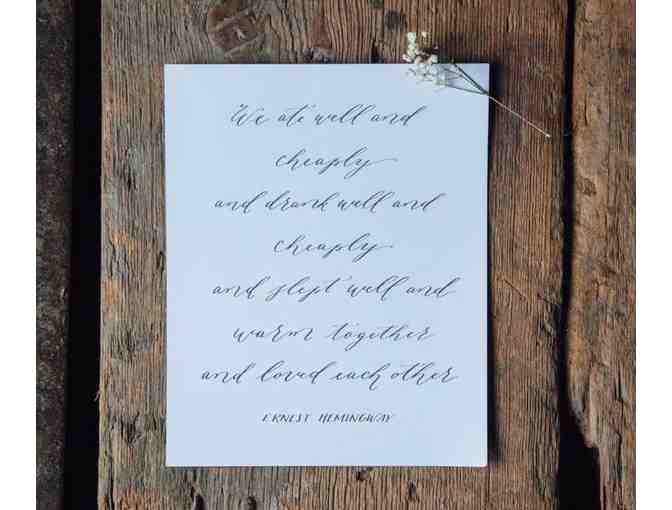 We ate well and
cheaply
and drank well and
cheaply
and slept well and
warm together
and loved each other
ERNEST HEMINGWAY